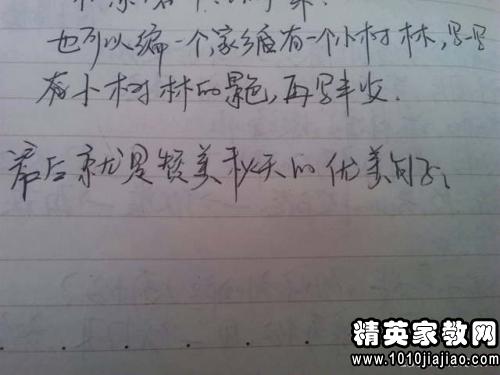 也可以编一个,家乡有一个小树林,写一写
有小树林的景色,再写丰收.
最后就是赞美秋天的优美句子,
精英家教网
www.1010jiajiao.com